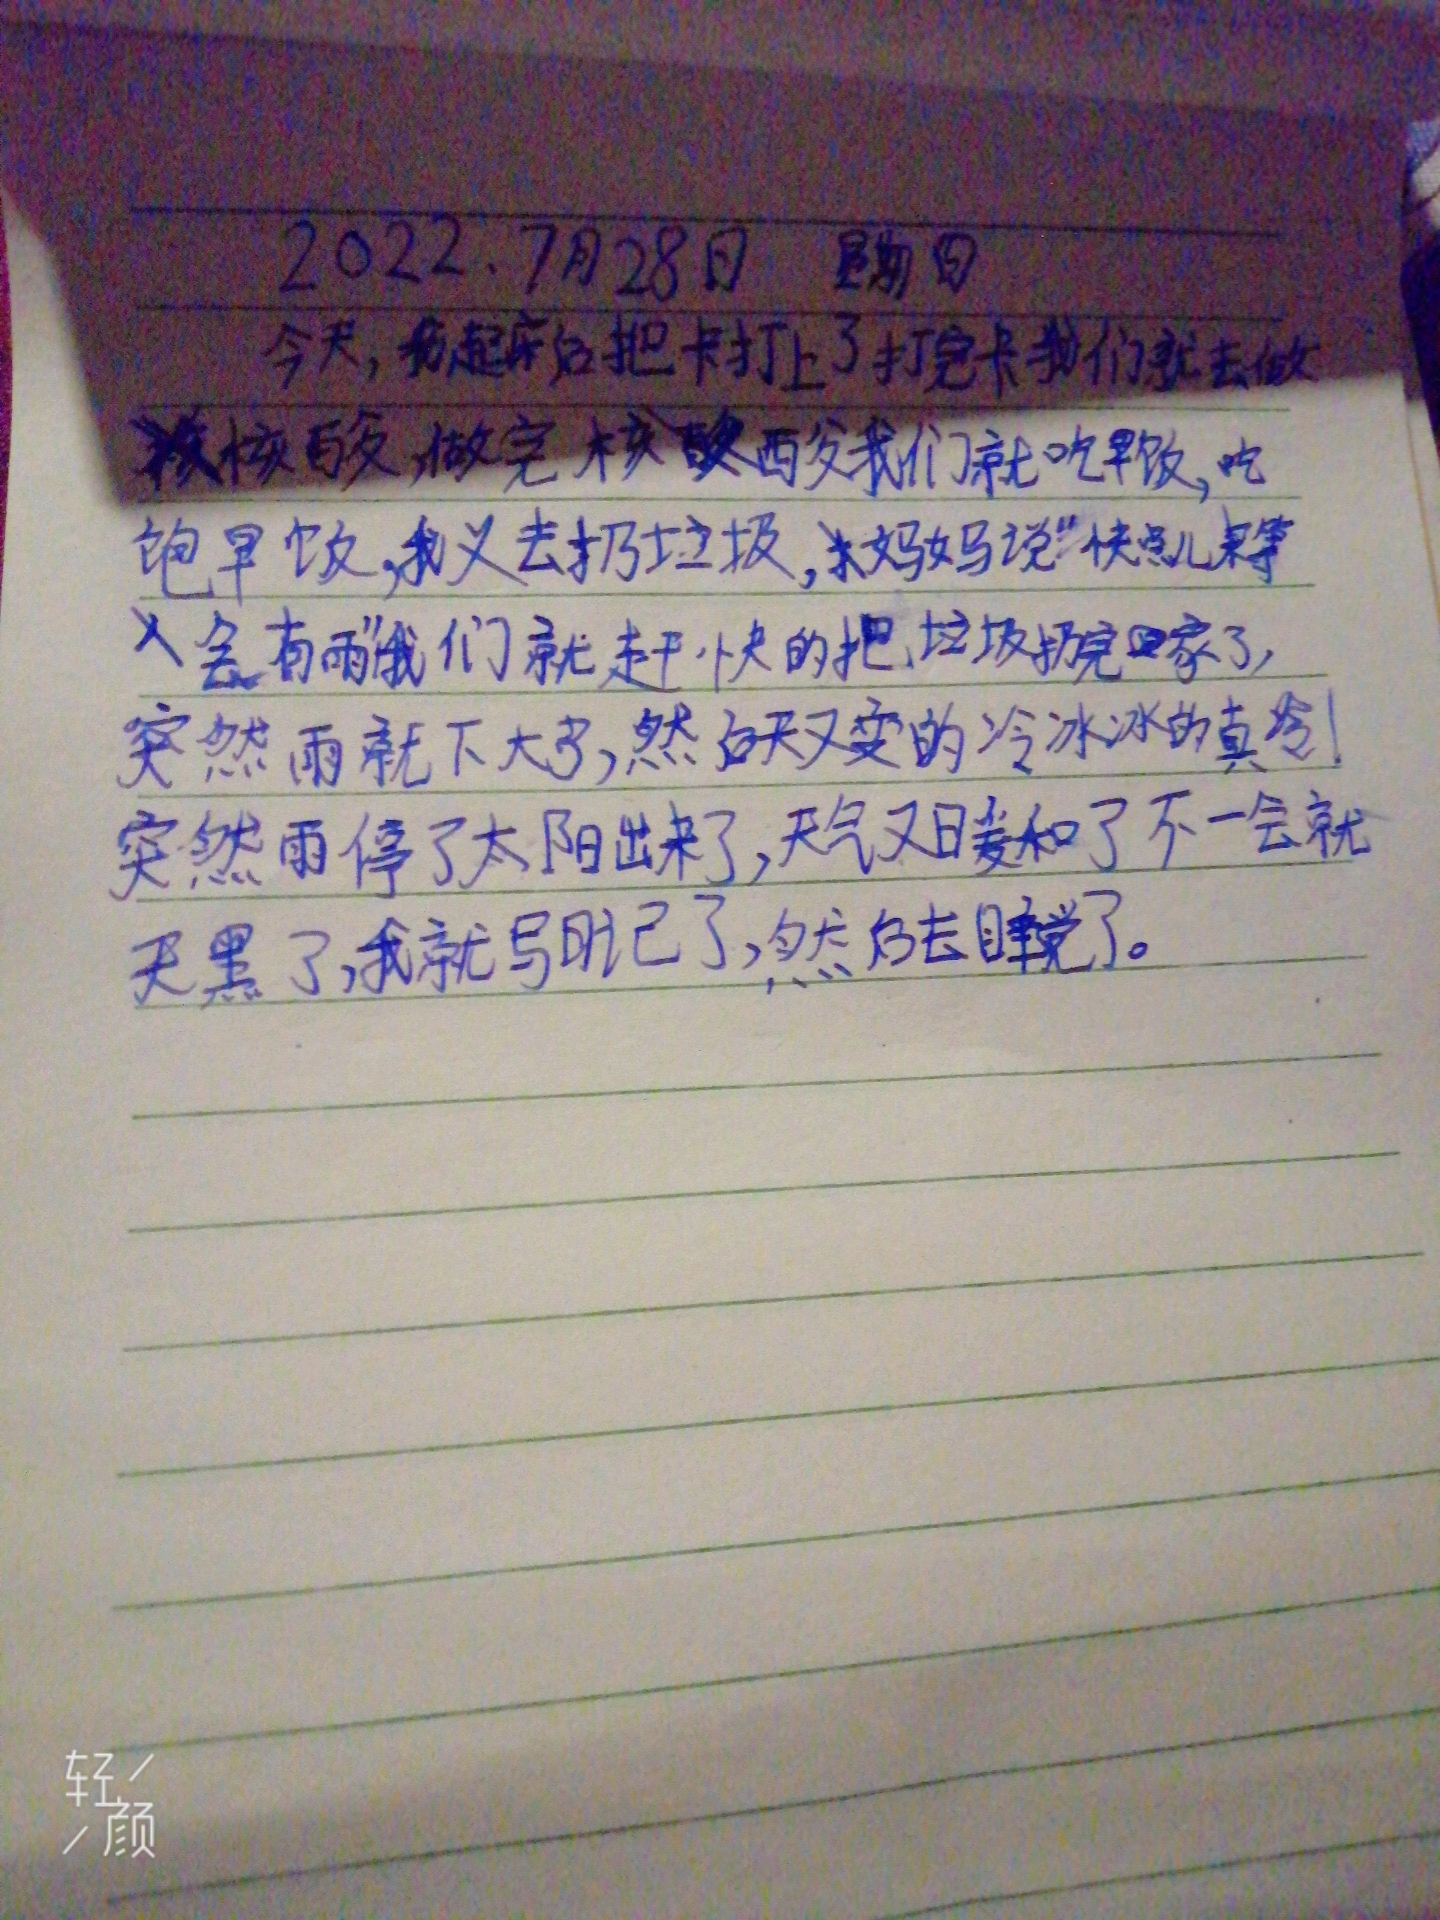 2022.7月28日 星期四
今天,我起床后把卡打上了打完卡我们就去做
核酸,做完核酸我们就吃早饭,吃
饱早饭,我又去扔垃圾,妈妈说"快点儿来等
会有雨"我们就赶快的把垃圾扔完回家了,
突然雨就下大了,然后天又变的冷冰冰的真冷!
突然雨停了太阳出来了,天气又暖和了不一会就
天黑了,我就写日记了,然后去睡觉了。
轻颜